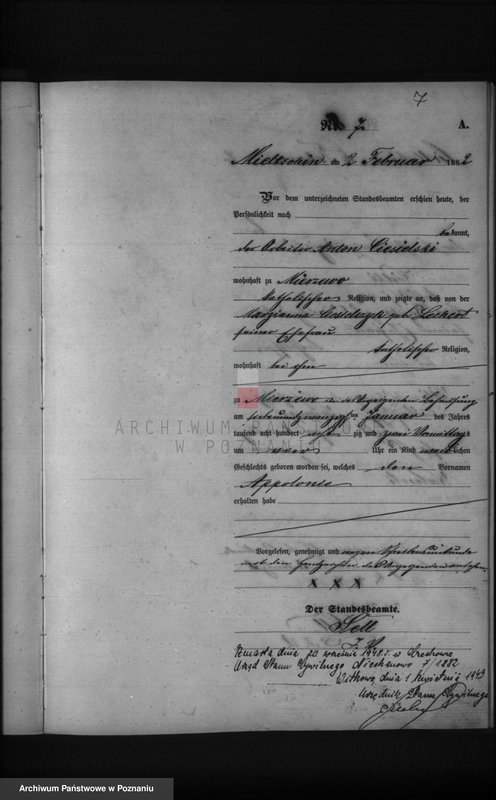 7
No. 7. A.
Mieltschin am 2 Februar 1882
Vor dem unterzeichneten Standesbeamten erschien heute, der
Persönlichkeit nach
bekannt,
der Arbeiter Anton Ciesielski
wohnhaft zu Mierzewo
katholischer Religion, und zeigte an, daß von der
Maryanna geb.
seiner Ehefrau
katholischer Religion,
wohnhaft bei ihm
zu Mierzewo in
am siebenundzwanzigsten Januar des Jahres
tausend acht hundert achtzig und zwei Vormittags
um Uhr ein Kind weiblichen
Geschlechts geboren worden sei, welches den Vornamen
Appolonie
erhalten habe
Vorgelesen, genehmigt und wegen
mit den Handzeichen des
X X X
Der Standesbeamte.
Sell
Zmarła dnia 20 września 1948 r. w
Urząd Stanu Cywilnego Niechanowo 7/1882
Witkowo, dnia 1 kwietnia 1949
Urzędnik Stanu Cywilnego
ARCHIWUM PAŃSTWOWE
W POZNANIU
Archiwum Państwowe w Poznaniu